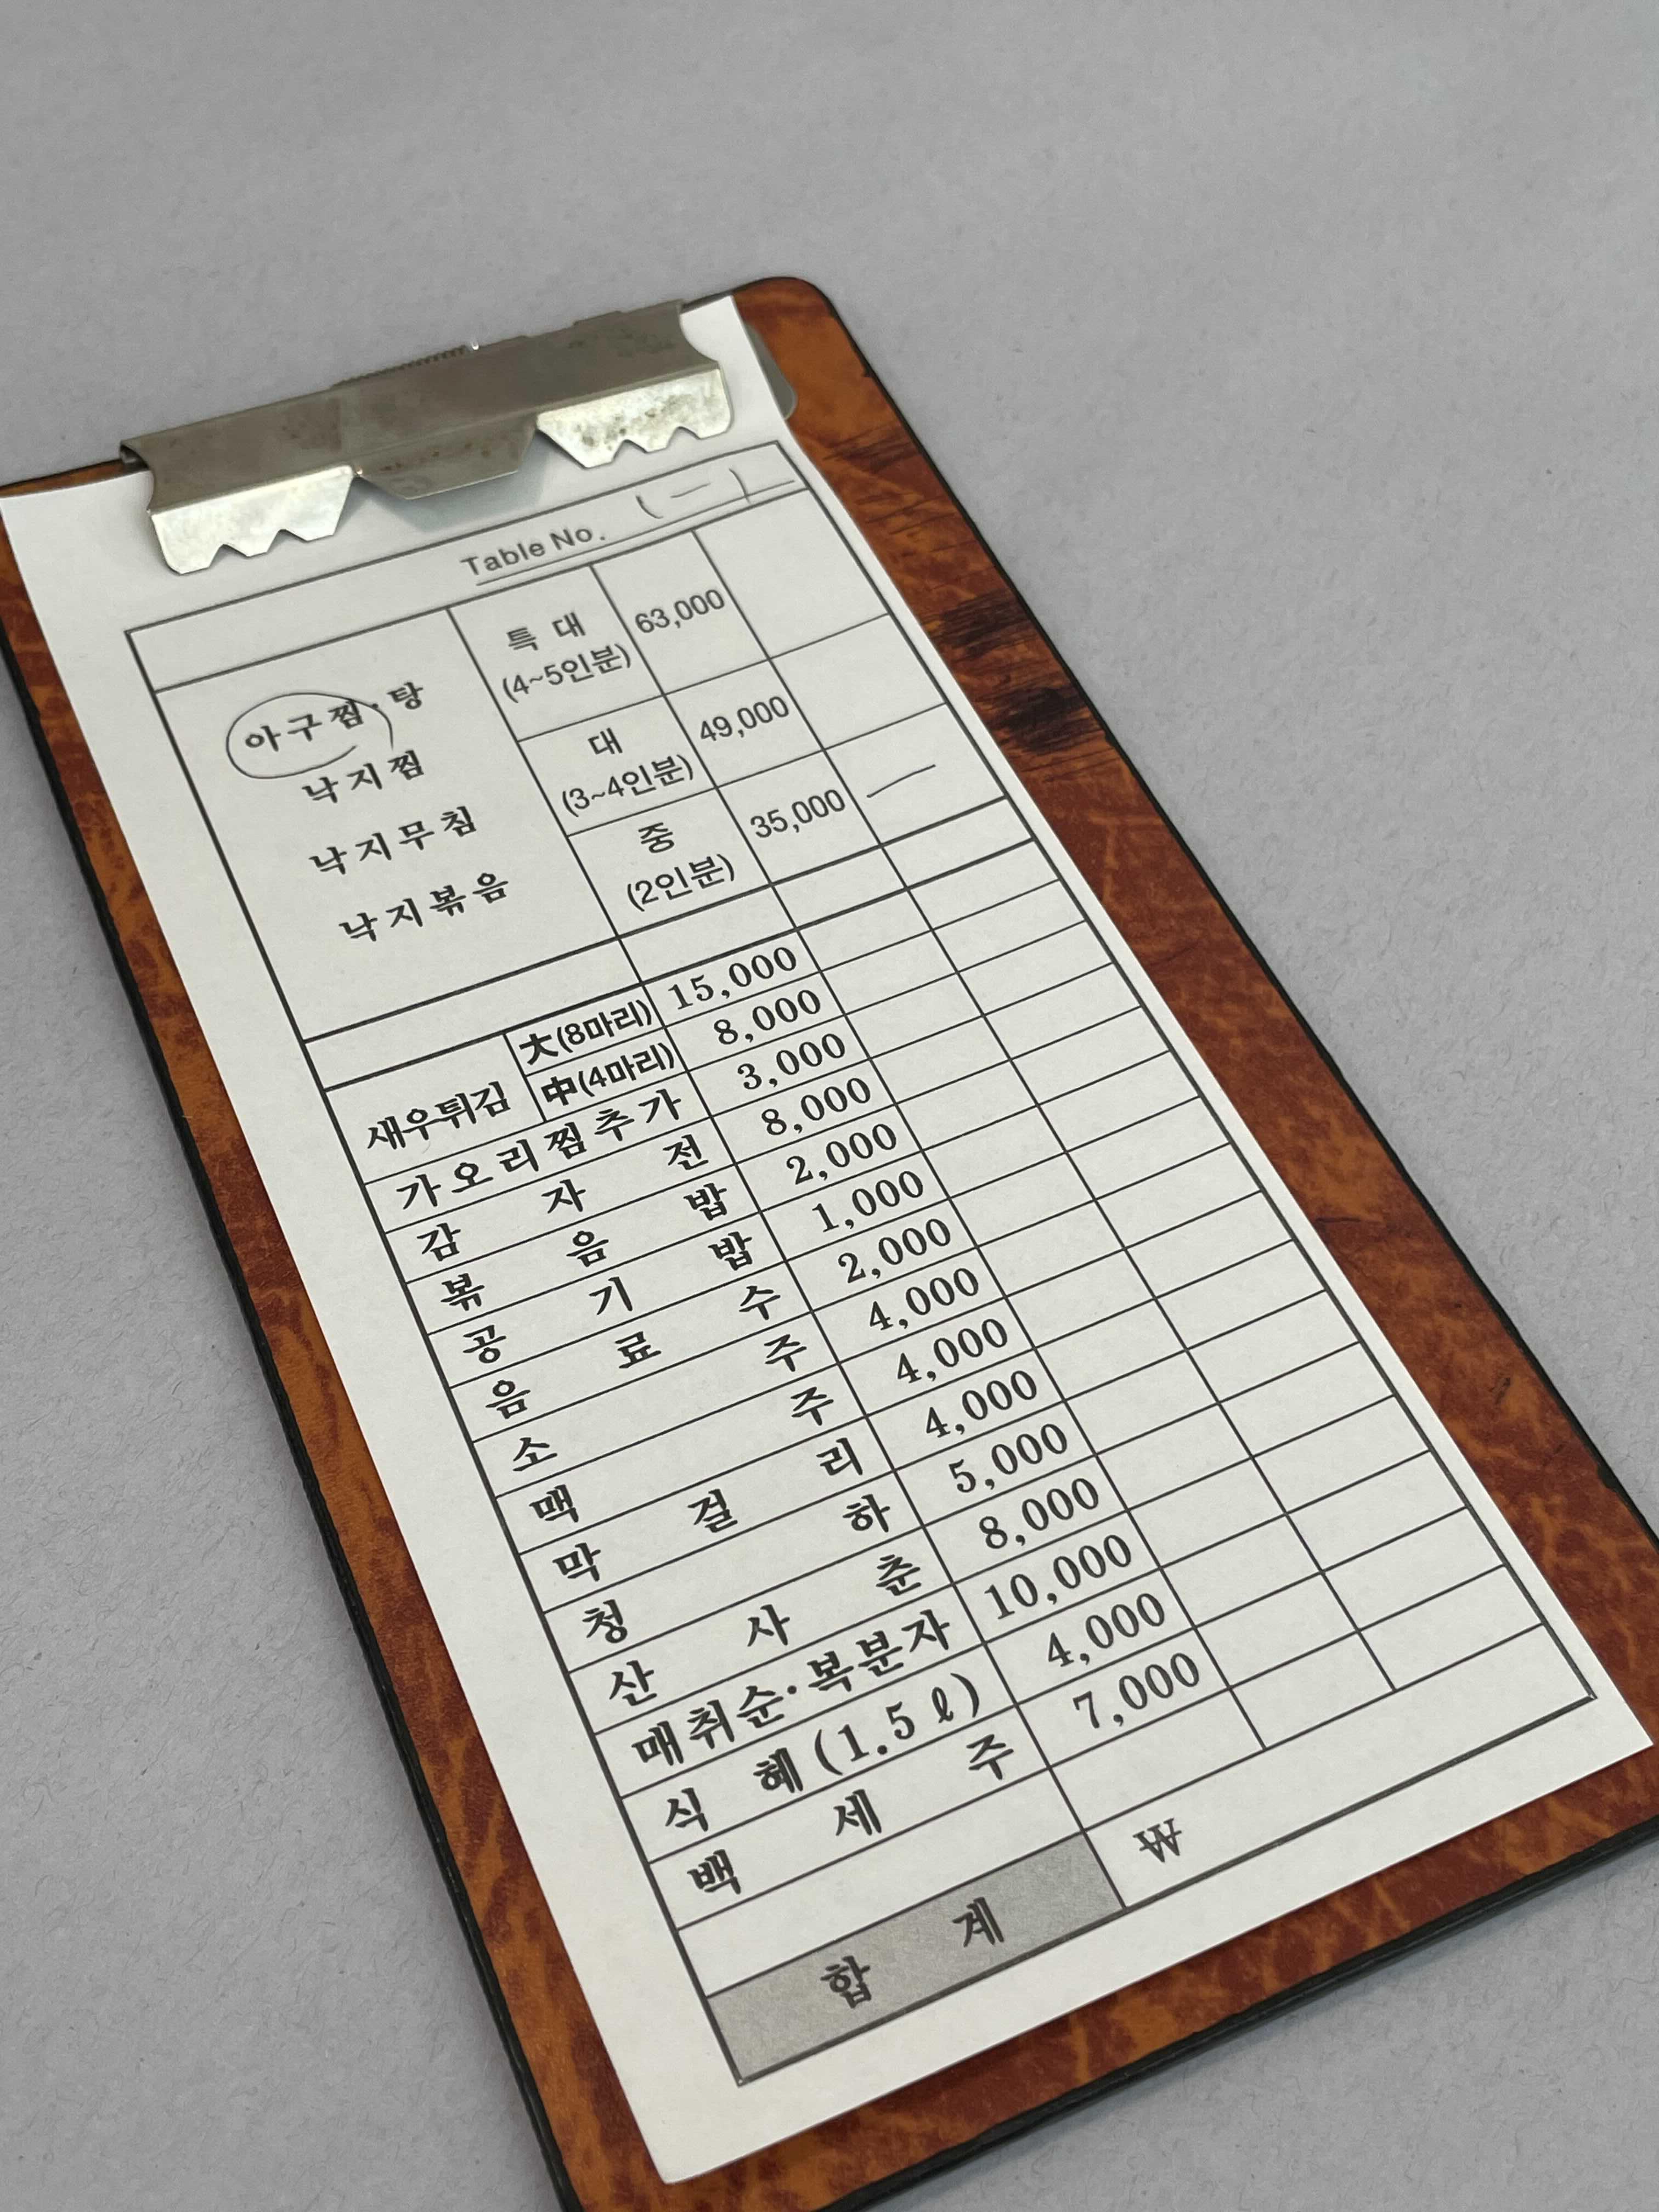 Table No. (一)
아구찜·탕
낙지찜
낙지무침
낙지볶음
특 대
(4~5인분)
63,000
대
(3~4인분)
49,000
중
(2인분)
35,000 一
새우튀김
大(8마리) 15,000
中(4마리) 8,000
가오리찜추가 3,000
감자전 8,000
볶음밥 2,000
공기밥 1,000
음료수 2,000
소주 4,000
맥주 4,000
막걸리 4,000
청하 5,000
산사춘 8,000
매취순·복분자 10,000
식혜(1.5ℓ) 4,000
백세주 7,000
합계 ₩